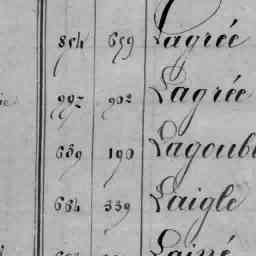 854 659 Lagrée
997 902 Lagrée
639 190 Lagoub
664 339 Laigle
Lainé